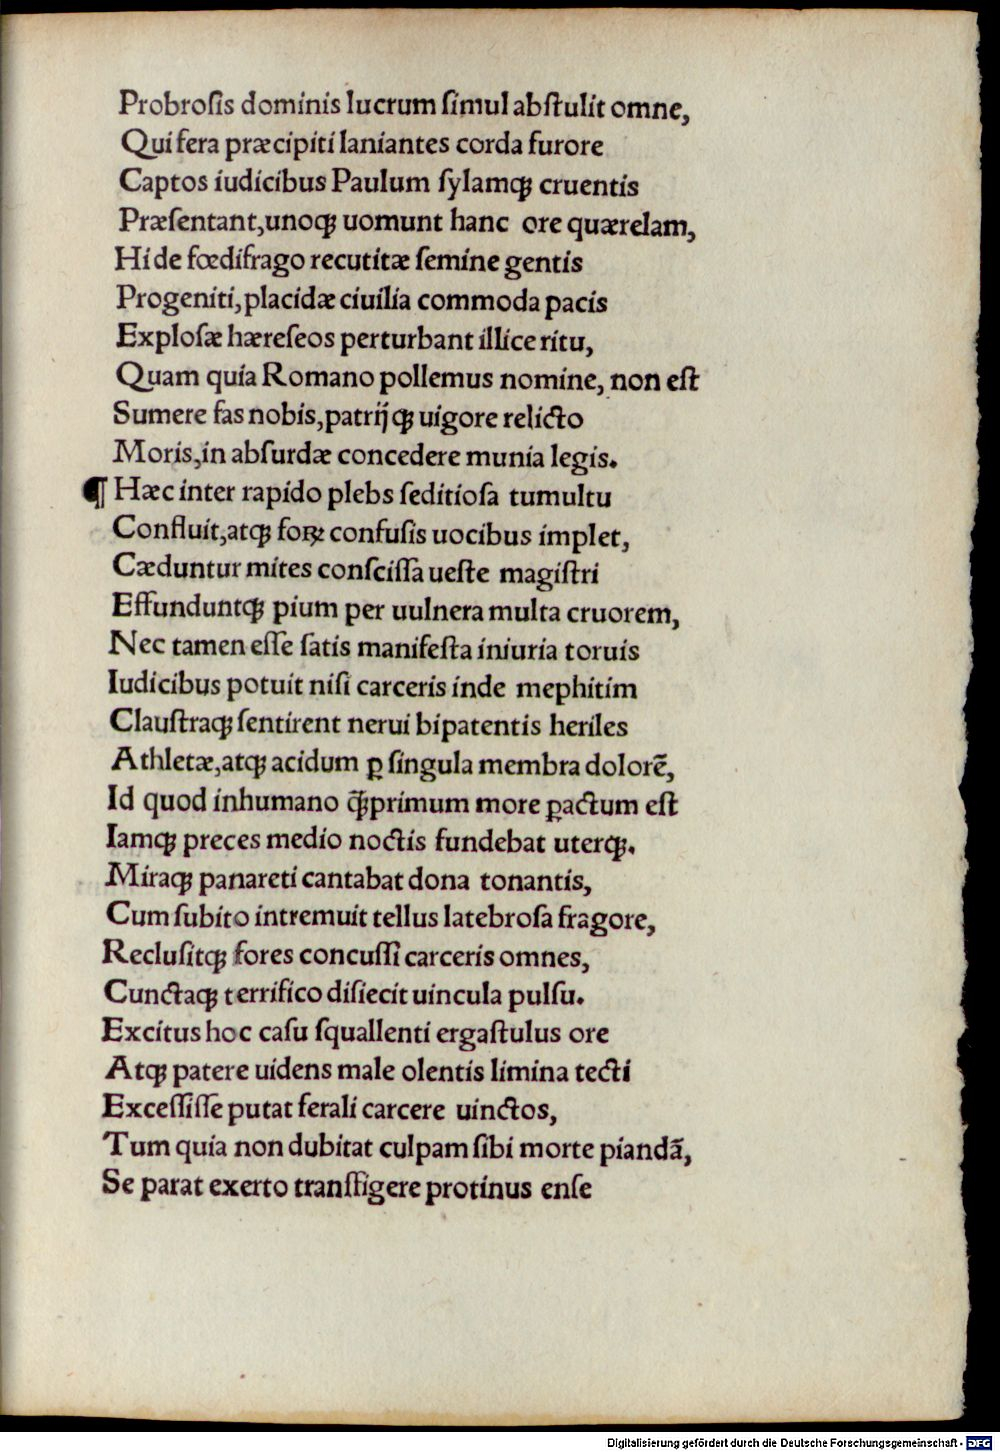 Probroſis dominis lucrum ſimul abſtulit omne,
Qui fera præcipiti laniantes corda furore
Captos iudicibus Paulum ſylamqꝫ cruentis
Præſentant,unoqꝫ uomunt hanc ore quærelam,
Hi de fœdifrago recutitæ ſemine gentis
Progeniti,placidæ ciuilia commoda pacis
Exploſæ hæreſeos perturbant illice ritu,
Quam quia Romano pollemus nomine, non eſt
Sumere fas nobis,patrijqꝫ uigore relicto
Moris,in abſurdæ concedere munia legis.
¶ Hæc inter rapido plebs ſeditioſa tumultu
Confluit,atqꝫ foꝝ confuſis uocibus implet,
Cæduntur mites conſciſſa ueſte magiſtri
Effunduntqꝫ pium per uulnera multa cruorem,
Nec tamen eſſe ſatis manifeſta iniuria toruis
Iudicibus potuit niſi carceris inde mephitim
Clauſtraqꝫ ſentirent nerui bipatentis heriles
Athletæ,atqꝫ acidum ꝑ ſingula membra dolorē,
Id quod inhumano q̄ꝫprimum more ꝑactum eſt
Iamqꝫ preces medio noctis fundebat uterqꝫ.
Miraqꝫ panareti cantabat dona tonantis,
Cum ſubito intremuit tellus latebroſa fragore,
Recluſitqꝫ fores concuſſi carceris omnes,
Cunctaqꝫ terrifico diſiecit uincula pulſu.
Excitus hoc caſu ſquallenti ergaſtulus ore
Atqꝫ patere uidens male olentis limina tecti
Exceſſiſſe putat ferali carcere uinctos,
Tum quia non dubitat culpam ſibi morte piandā,
Se parat exerto tranſfigere protinus enſe
Digitalisierung gefördert durch die Deutsche Forschungsgemeinschaft - DFG